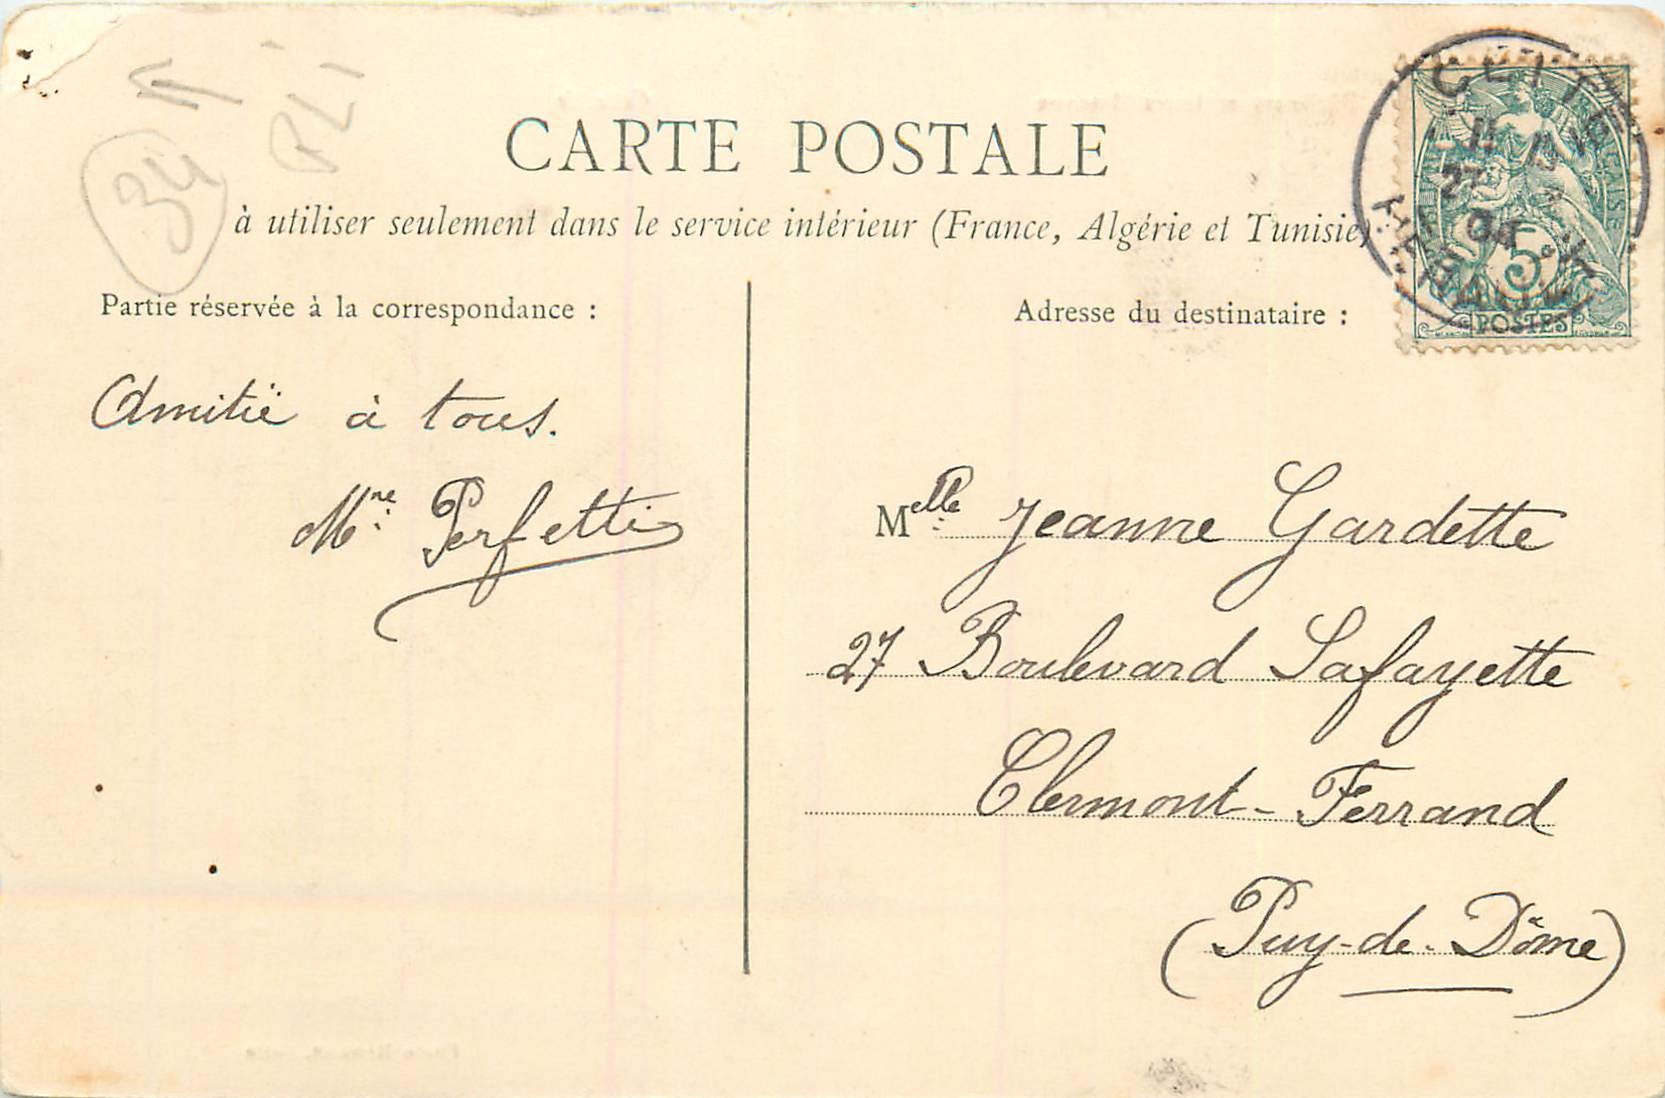 CARTE POSTALE
à utiliser seulement dans le service intérieur (France, Algérie et Tunisie)
Partie réservée à la correspondance :
Amitié à tous.
Mne Perfetti
Adresse du destinataire :
Melle Jeanne Gardette
27 Boulevard Lafayette
Clermont-Ferrand
(Puy-de-Dôme)
CETTE
27
04
HERAULT
5c
POSTES
34